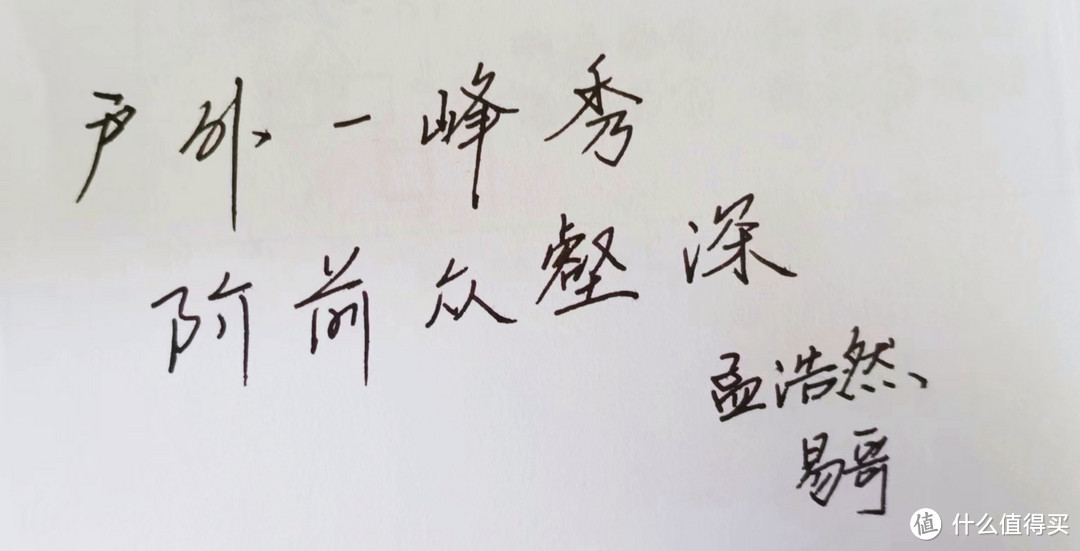 户外一峰秀
阶前众壑深
孟浩然
易哥
值 什么值得买